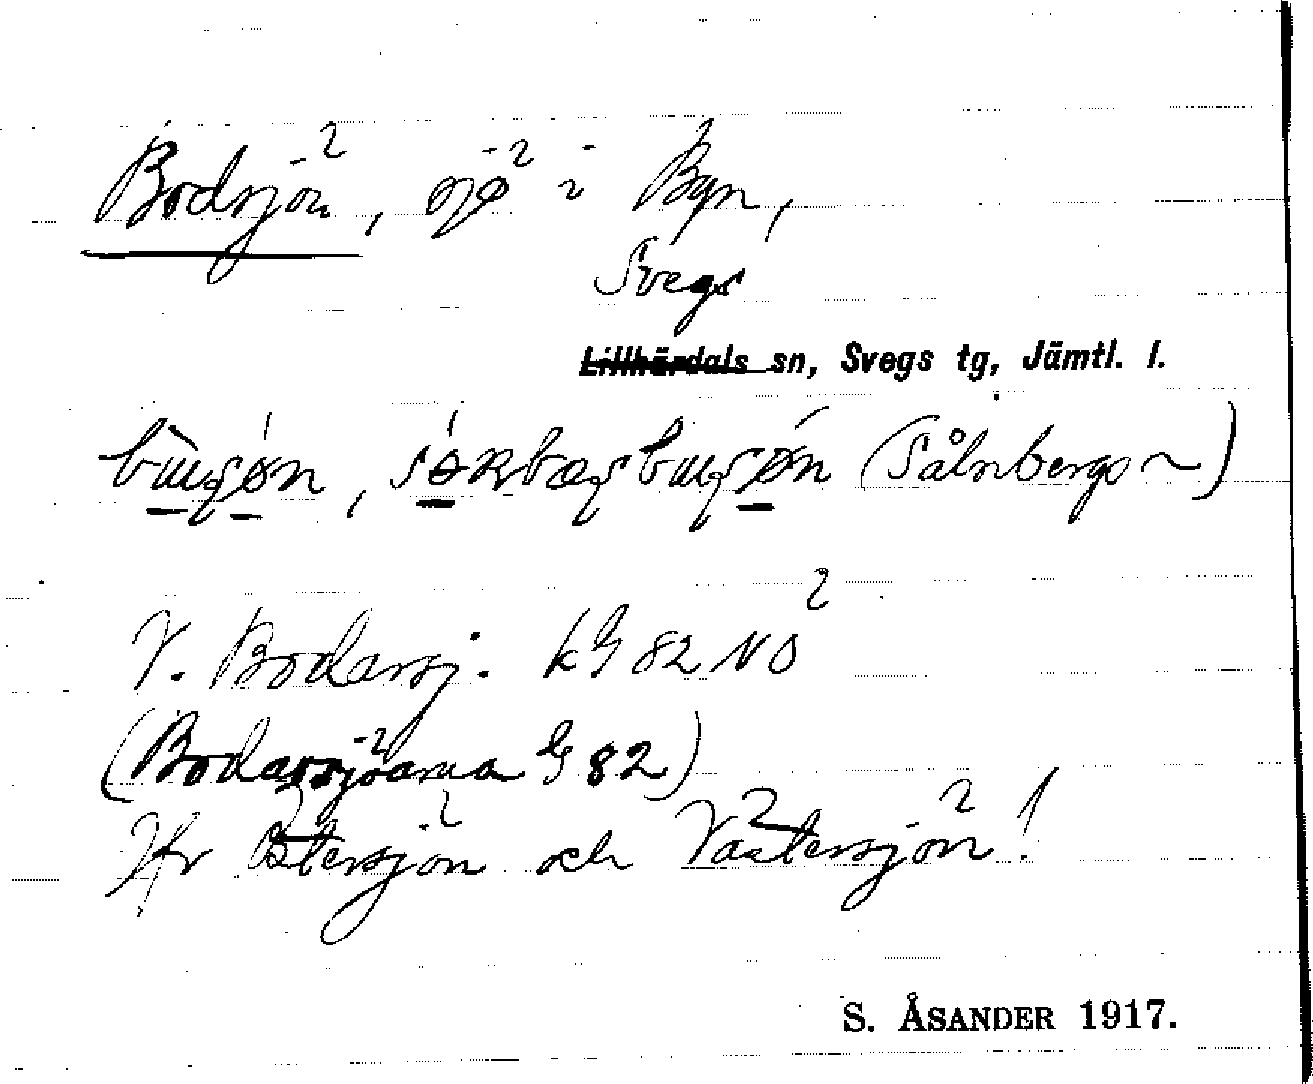 Bodsjön, sjö i Byn,
Svegs
Lillhärdals sn, Svegs tg, Jämtl. l.
(Sålnbergs ~)
V. Bodarsj. kG 82 NO
(Bodarsjöarna G 82)
Jfr Östersjön och Västersjön!
S. ÅSANDER 1917.